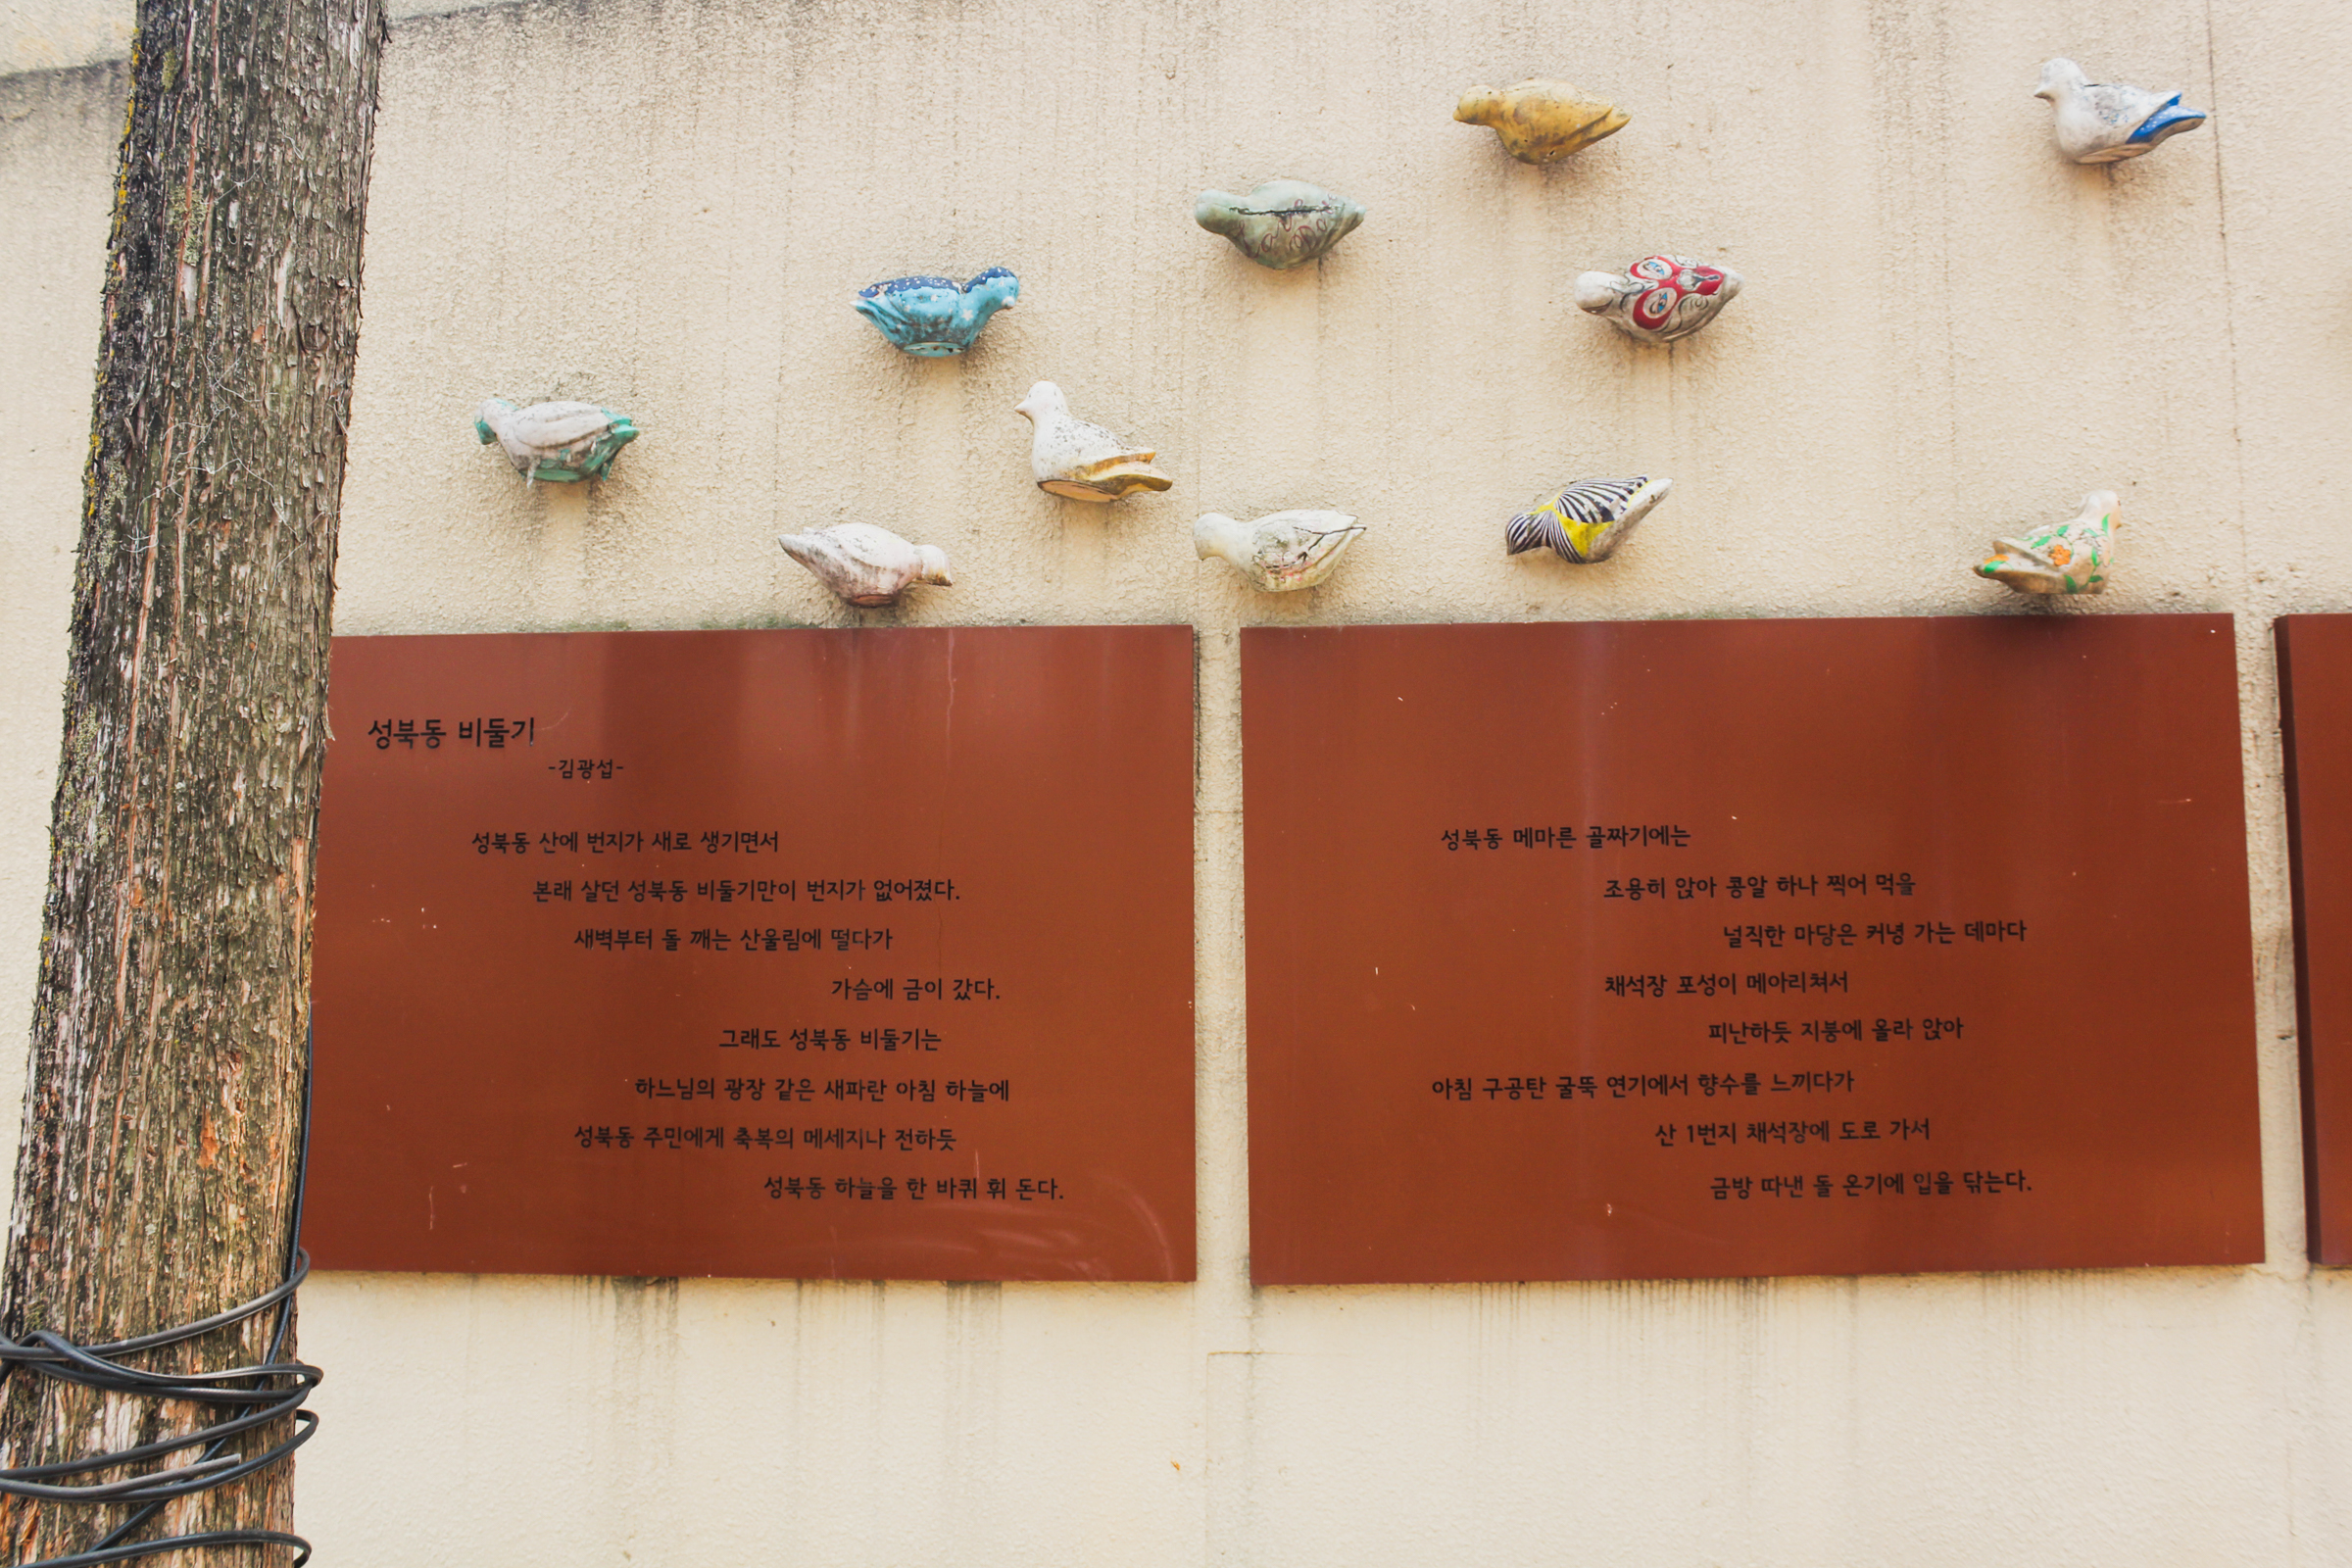 성북동 비둘기
-김광섭-
성북동 산에 번지가 새로 생기면서
본래 살던 성북동 비둘기만이 번지가 없어졌다.
새벽부터 돌 깨는 산울림에 떨다가
가슴에 금이 갔다.
그래도 성북동 비둘기는
하느님의 광장 같은 새파란 아침 하늘에
성북동 주민에게 축복의 메세지나 전하듯
성북동 하늘을 한 바퀴 휘 돈다.
성북동 메마른 골짜기에는
조용히 앉아 콩알 하나 찍어 먹을
널직한 마당은 커녕 가는 데마다
채석장 포성이 메아리쳐서
피난하듯 지붕에 올라 앉아
아침 구공탄 굴뚝 연기에서 향수를 느끼다가
산 1번지 채석장에 도로 가서
금방 따낸 돌 온기에 입을 닦는다.